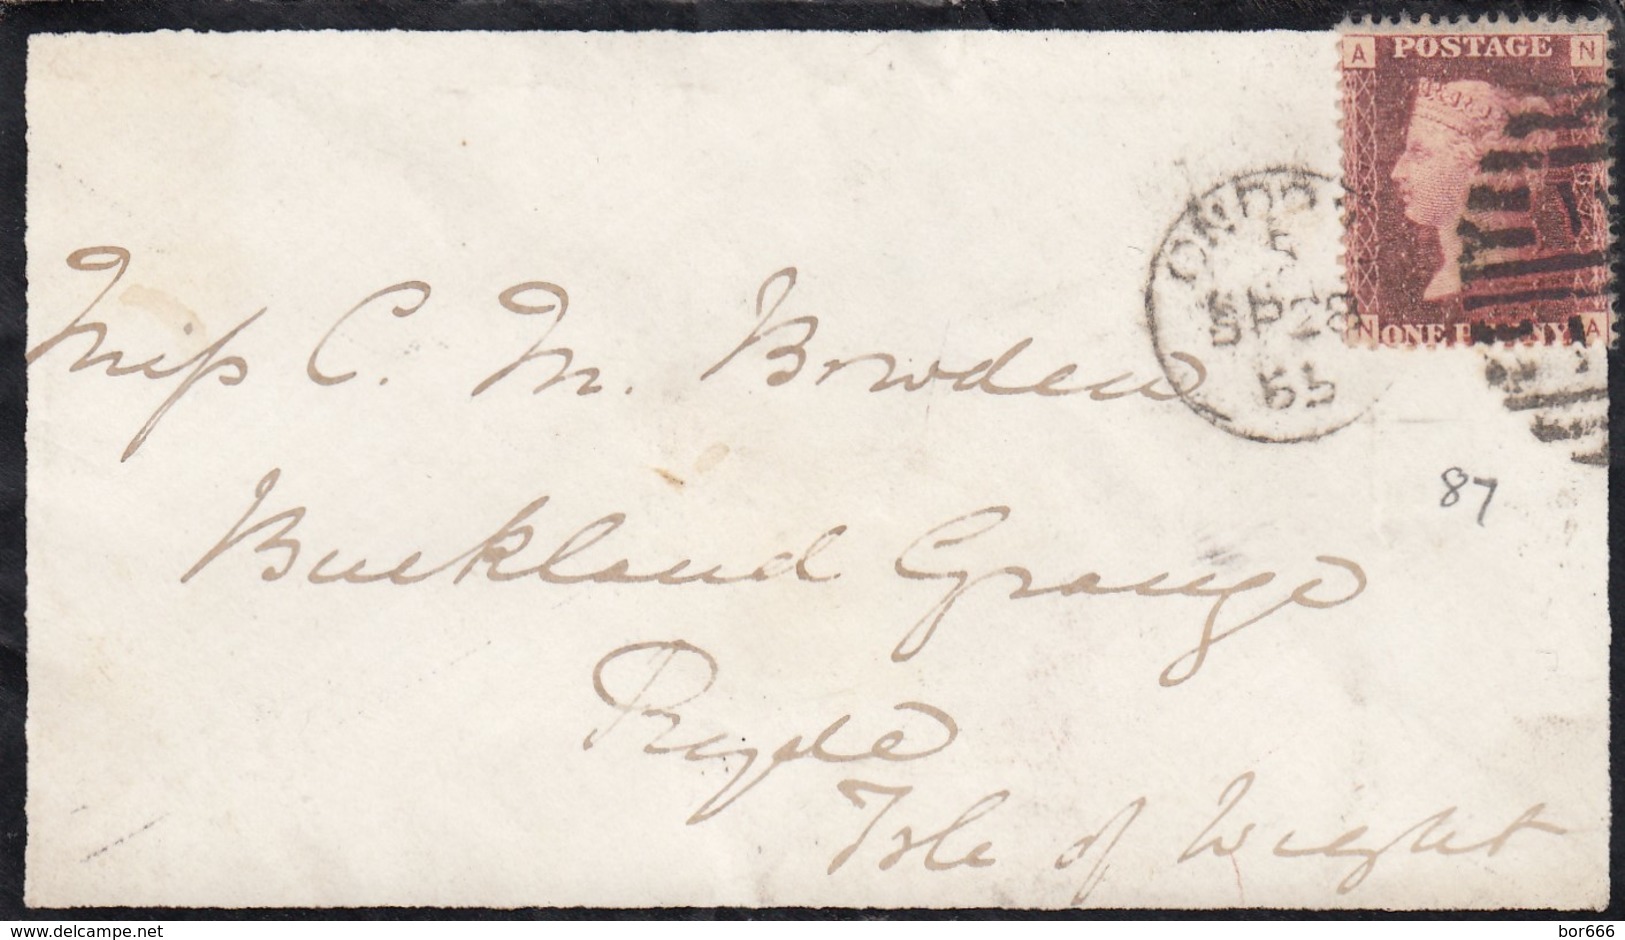 A POSTAGE N
N ONE PENNY A
LONDON
5
SP 28
65
Miss C. M. Bowden
Buckland Grange
Ryde
Isle of Wight
87
delcampe.net
bor666